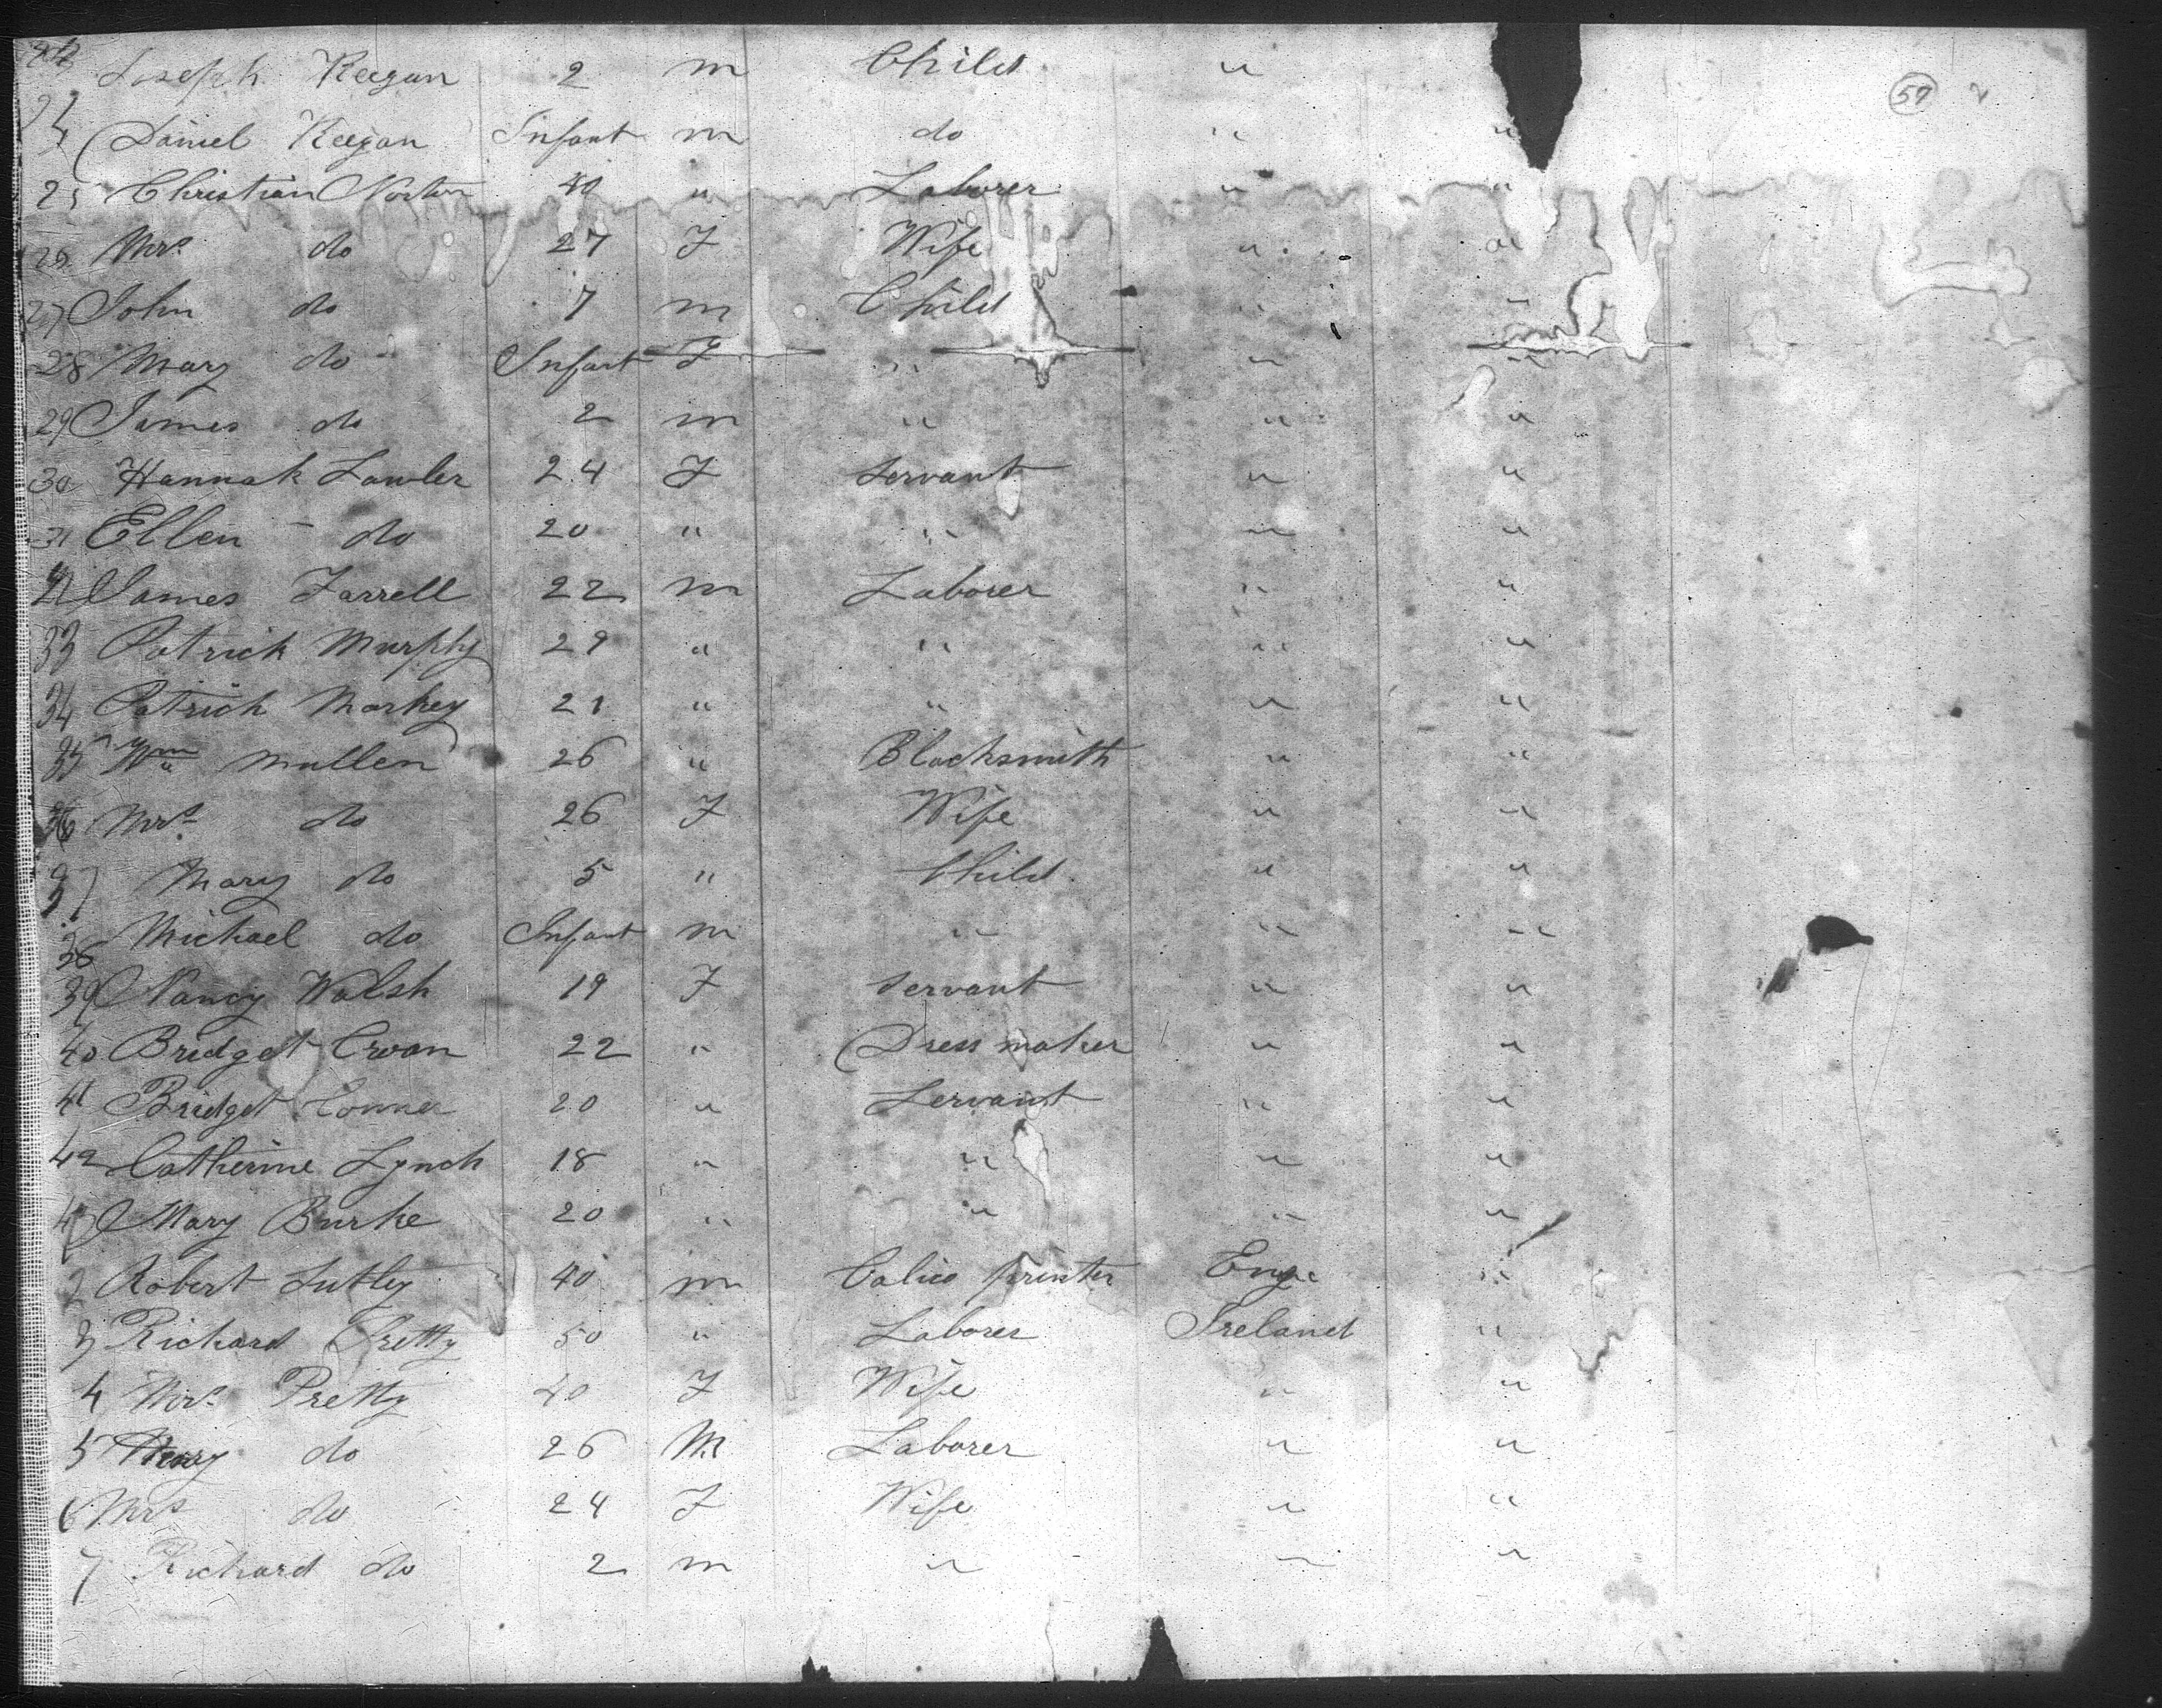 Joseph Keegan 2 m Child "
57
24 Daniel Keegan Infant m do " "
25 Christian Norton 40 " Laborer " "
26 Mrs do 27 F Wife " "
27 John do 7 m Child " "
28 Mary do Infant F " " "
29 James do 2 m " " "
30 Hannah Lawler 24 F Servant " "
31 Ellen - do 20 " " " "
James Farrell 22 m Laborer " "
33 Patrick Murphy 29 " " " "
34 Patrick Markey 21 " " " "
35 Wm Mullen 26 " Blacksmith " "
36 Mrs do 26 F Wife " "
37 Mary do 5 " Child " "
38 Michael do Infant m " " "
39 Nancy Walsh 19 F Servant " "
40 Bridget Croan 22 " Dress maker " "
41 Bridget Conner 20 " Servant " "
42 Catherine Lynch 18 " " " "
Mary Burke 20 " " " "
2 Robert Lutley 40 m Calico printer "
3 Richard Pretty 50 " Laborer Ireland "
4 Mrs Pretty 40 F Wife " "
5 do 26 M Laborer " "
6 Mrs do 24 F Wife " "
7 Richard do 2 m " " "